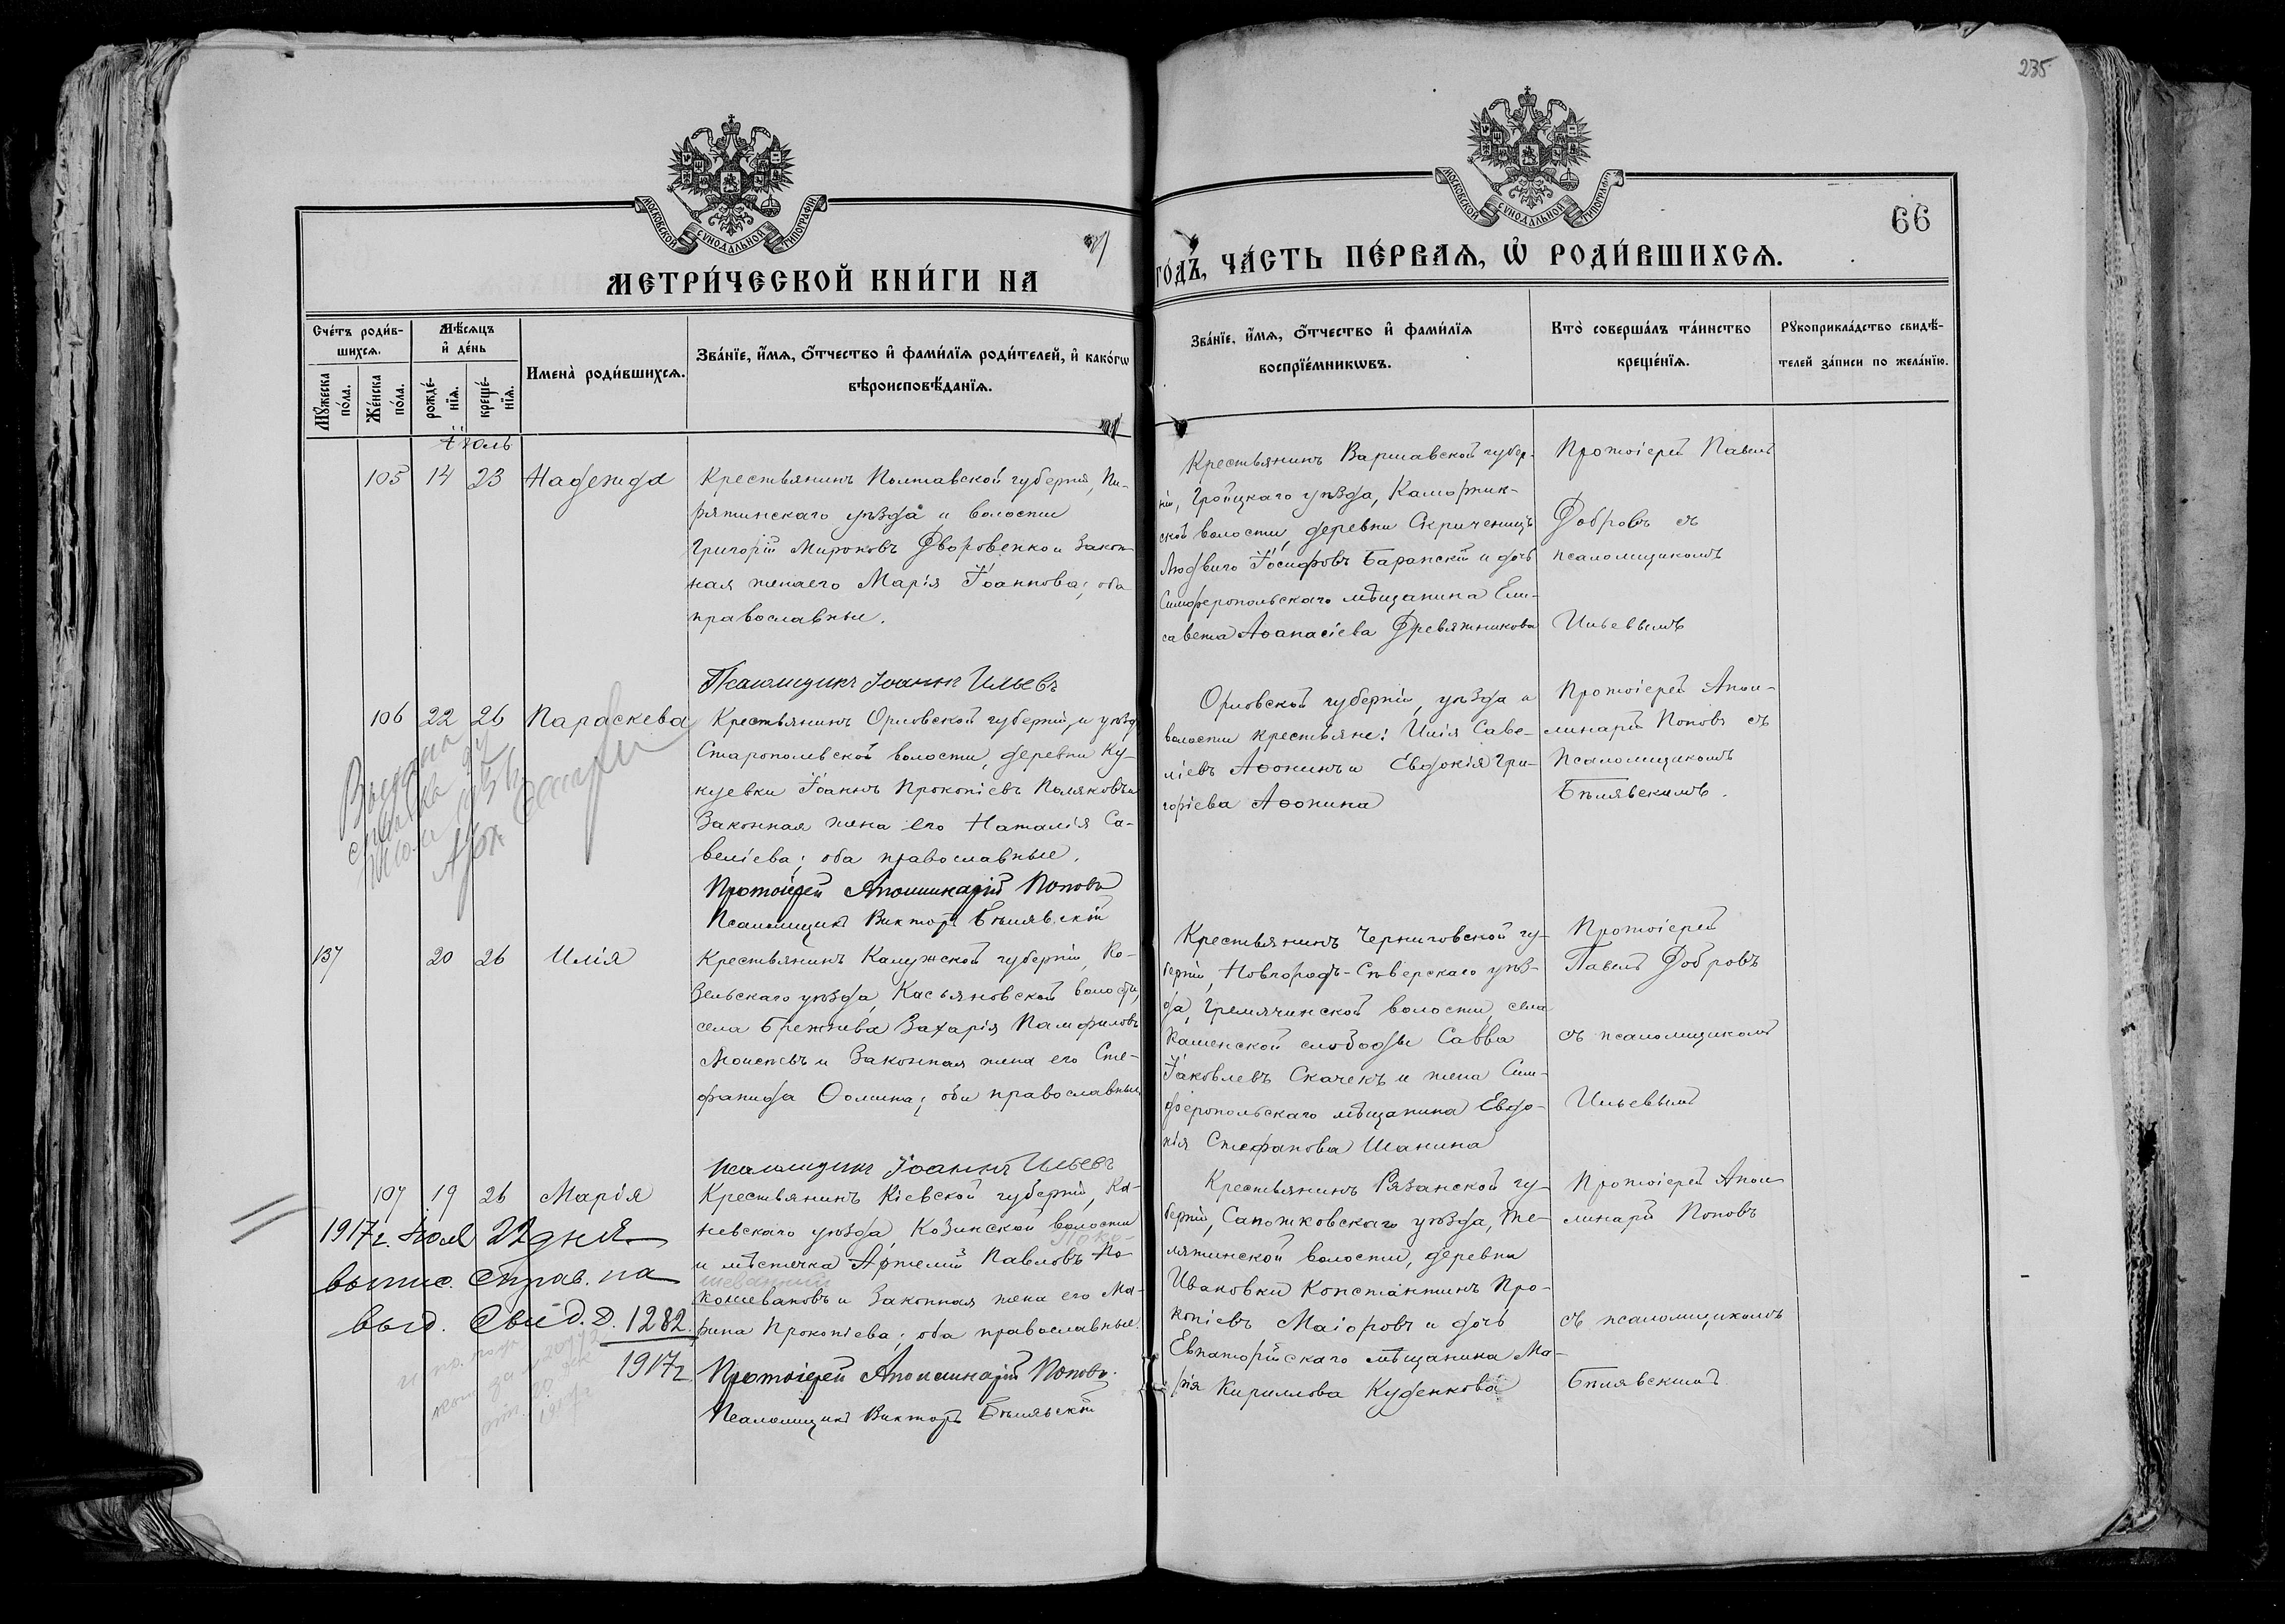 235
66
МОСКОВСКОЙ СѴНОДАЛЬНОЙ ТИПОГРАФІИ
МОСКОВСКОЙ СѴНОДАЛЬНОЙ ТИПОГРАФІИ
МЕТРИ́ЧЕСКОЙ КНИ́ГИ НА
ГО́ДЪ, ЧА́СТЬ ПЕ́РВАѦ, Ѡ РОДИ́ВШИХСѦ.
Сче́тъ роди́в-
шихсѧ.
Мꙋ́жеска
по́ла.
Же́нска
по́ла.
Мѣ́сѧцъ
и де́нь
рожде́-
нїѧ.
креще́-
нїѧ.
Имена̀ роди́вшихсѧ.
Зва́нїе, и́мѧ, о́тчество и фами́лїѧ роди́телей, и како́гѡ
вѣроисповѣ́данїѧ.
Зва́нїе, и́мѧ, о́тчество и фами́лїѧ
воспрїе́мникѡвъ.
Кто̀ соверша́лъ та́инство
креще́нїѧ.
Рꙋкоприкла́дство свидѣ́-
телей за́писи по жела́нїю.
Іюль
105 14 23 Надежда
Крестьянинъ Полтавской губерніи, Пи-
рятинскаго уѣзда и волости
Григорій Мироновъ Дворовенко и закон-
ная жена его Марія Іоаннова; оба
православные.
Псаломщикъ Іоаннъ Ильевъ
Крестьянинъ Варшавской губер-
ніи, Гройцкаго уѣзда,
ской волости, деревни
Людвигъ Іосифовъ Баранскій и дочь
Симферопольскаго мѣщанина Ели-
савета Аѳанасіева Древятникова
Протоіерей Павелъ
Добровъ съ
псаломщикомъ
Ильевымъ
106 22 26 Параскева
Крестьянинъ Орловской губерніи, и уѣзда
Старопольской волости, деревни Ку-
куевки Іоаннъ Прокопіевъ Поляковъ и
законная жена его Наталія Са-
веліева; оба православные.
Протоіерей Аполлинарій Поповъ
Псаломщикъ Викторъ Бѣлявскій
Орловской губерніи, уѣзда и
волости крестьяне: Илія Саве-
ліевъ Аѳонинъ и Евдокія Гри-
горіева Аѳонина
Протоіерей Апол-
линарій Поповъ съ
Псаломщикомъ
Бѣлявскимъ.
Выдана
137 20 26 Илія
Крестьянинъ Калужской губерніи, Ко-
зельскаго уѣзда, Касьяновской волости,
села Захарія Памфиловъ
Моисѣевъ и законная жена его Сте-
фанида Ѳомина; оба православные
Псаломщикъ Іоаннъ Ильевъ
Крестьянинъ Черниговской гу-
берніи, Новгородъ-Сѣверскаго уѣз-
да, Гремячинской волости, села
Каменской слободы Савва
Іаковлевъ Скачекъ и жена Сим-
феропольскаго мѣщанина Евдо-
кія Стефанова Шанина
Протоіерей
Павелъ Добровъ
съ псаломщикомъ
Ильевымъ
107 19 26 Марія
Крестьянинъ Кіевской губерніи, Ка-
невскаго уѣзда, Козинской волости
и мѣстечка Артемій Павловъ По-
кошевановъ и законная жена его Ма-
рина Прокопіева; оба православные.
Протоіерей Аполлинарій Поповъ.
Псаломщикъ Викторъ Бѣлявскій
1917 г. Іюля 22 дня
выпис. справ. на
выд. Свид. 1282
1917 г.
Крестьянинъ Рязанской гу-
берніи, Сапожковскаго уѣзда,
волости, деревни
Ивановки Константинъ Про-
копіевъ Маіоровъ и дочь
Евпаторійскаго мѣщанина Ма-
рія Кириллова Куденкова
Протоіерей Апол-
линарій Поповъ
съ псаломщикомъ
Бѣлявскимъ